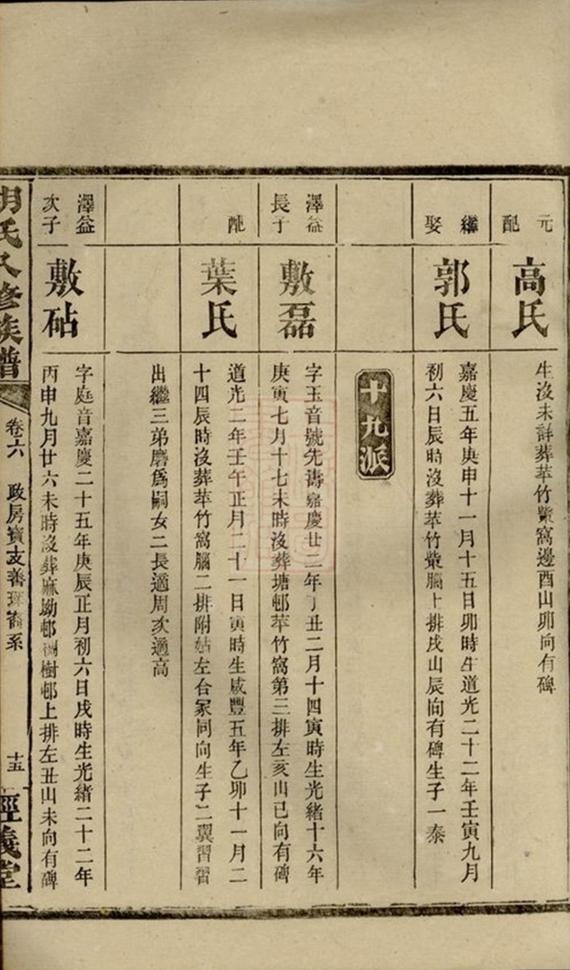 元配
高氏
生沒未詳葬苹竹觜窩邊酉山卯向有碑
繼娶
郭氏
嘉慶五年庚申十一月十五日卯時生道光二十二年壬寅九月
初六日辰時沒葬苹竹觜腦上排戌山辰向有碑生子一泰
十九派
澤益長子
敷磊
字玉音號先壽嘉慶廿二年丁丑二月十四寅時生光緒十六年
庚寅七月十七未時沒葬塘邨苹竹窩第三排左亥山巳向有碑
配
葉氏
道光二年壬午正月二十一日寅時生咸豐五年乙卯十一月二
十四辰時沒葬苹竹窩腦二排附姑左合冢同向生子二翼習習
出繼三弟磨爲嗣女二長適周次適高
澤益次子
敷砧
字庭音嘉慶二十五年庚辰正月初六日戌時生光緒二十二年
丙申九月廿六未時沒葬麻坳邨樹邨上排左丑山未向有碑
胡氏八修族譜
卷六
政房寶支善系
十五
經義堂